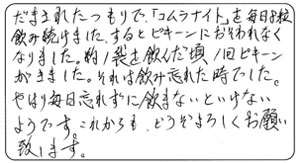 だまされたつもりで、「コムラナイト」を毎日8粒
飲み続けました。するとピキーンにおそわれなく
なりました。約1袋を飲んだ頃1回ピキーン
がきました。それは飲み忘れた時でした。
やはり毎日忘れずに飲まないといけない
ようです。これからも、どうぞよろしくお願い
致します。